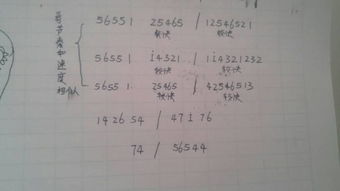 每节奏和速度相似
56551 25465 / 12546521
较快 较快
56551 i4321 / 1i4321232
较快 较快
56551 25465 / 42546513
较快 较快
142654 / 47176
74 / 56544